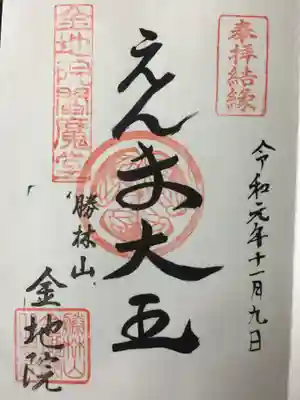 奉拝結縁
令和元年十一月九日
えんま大王
勝林山
金地院
金地院閻魔堂